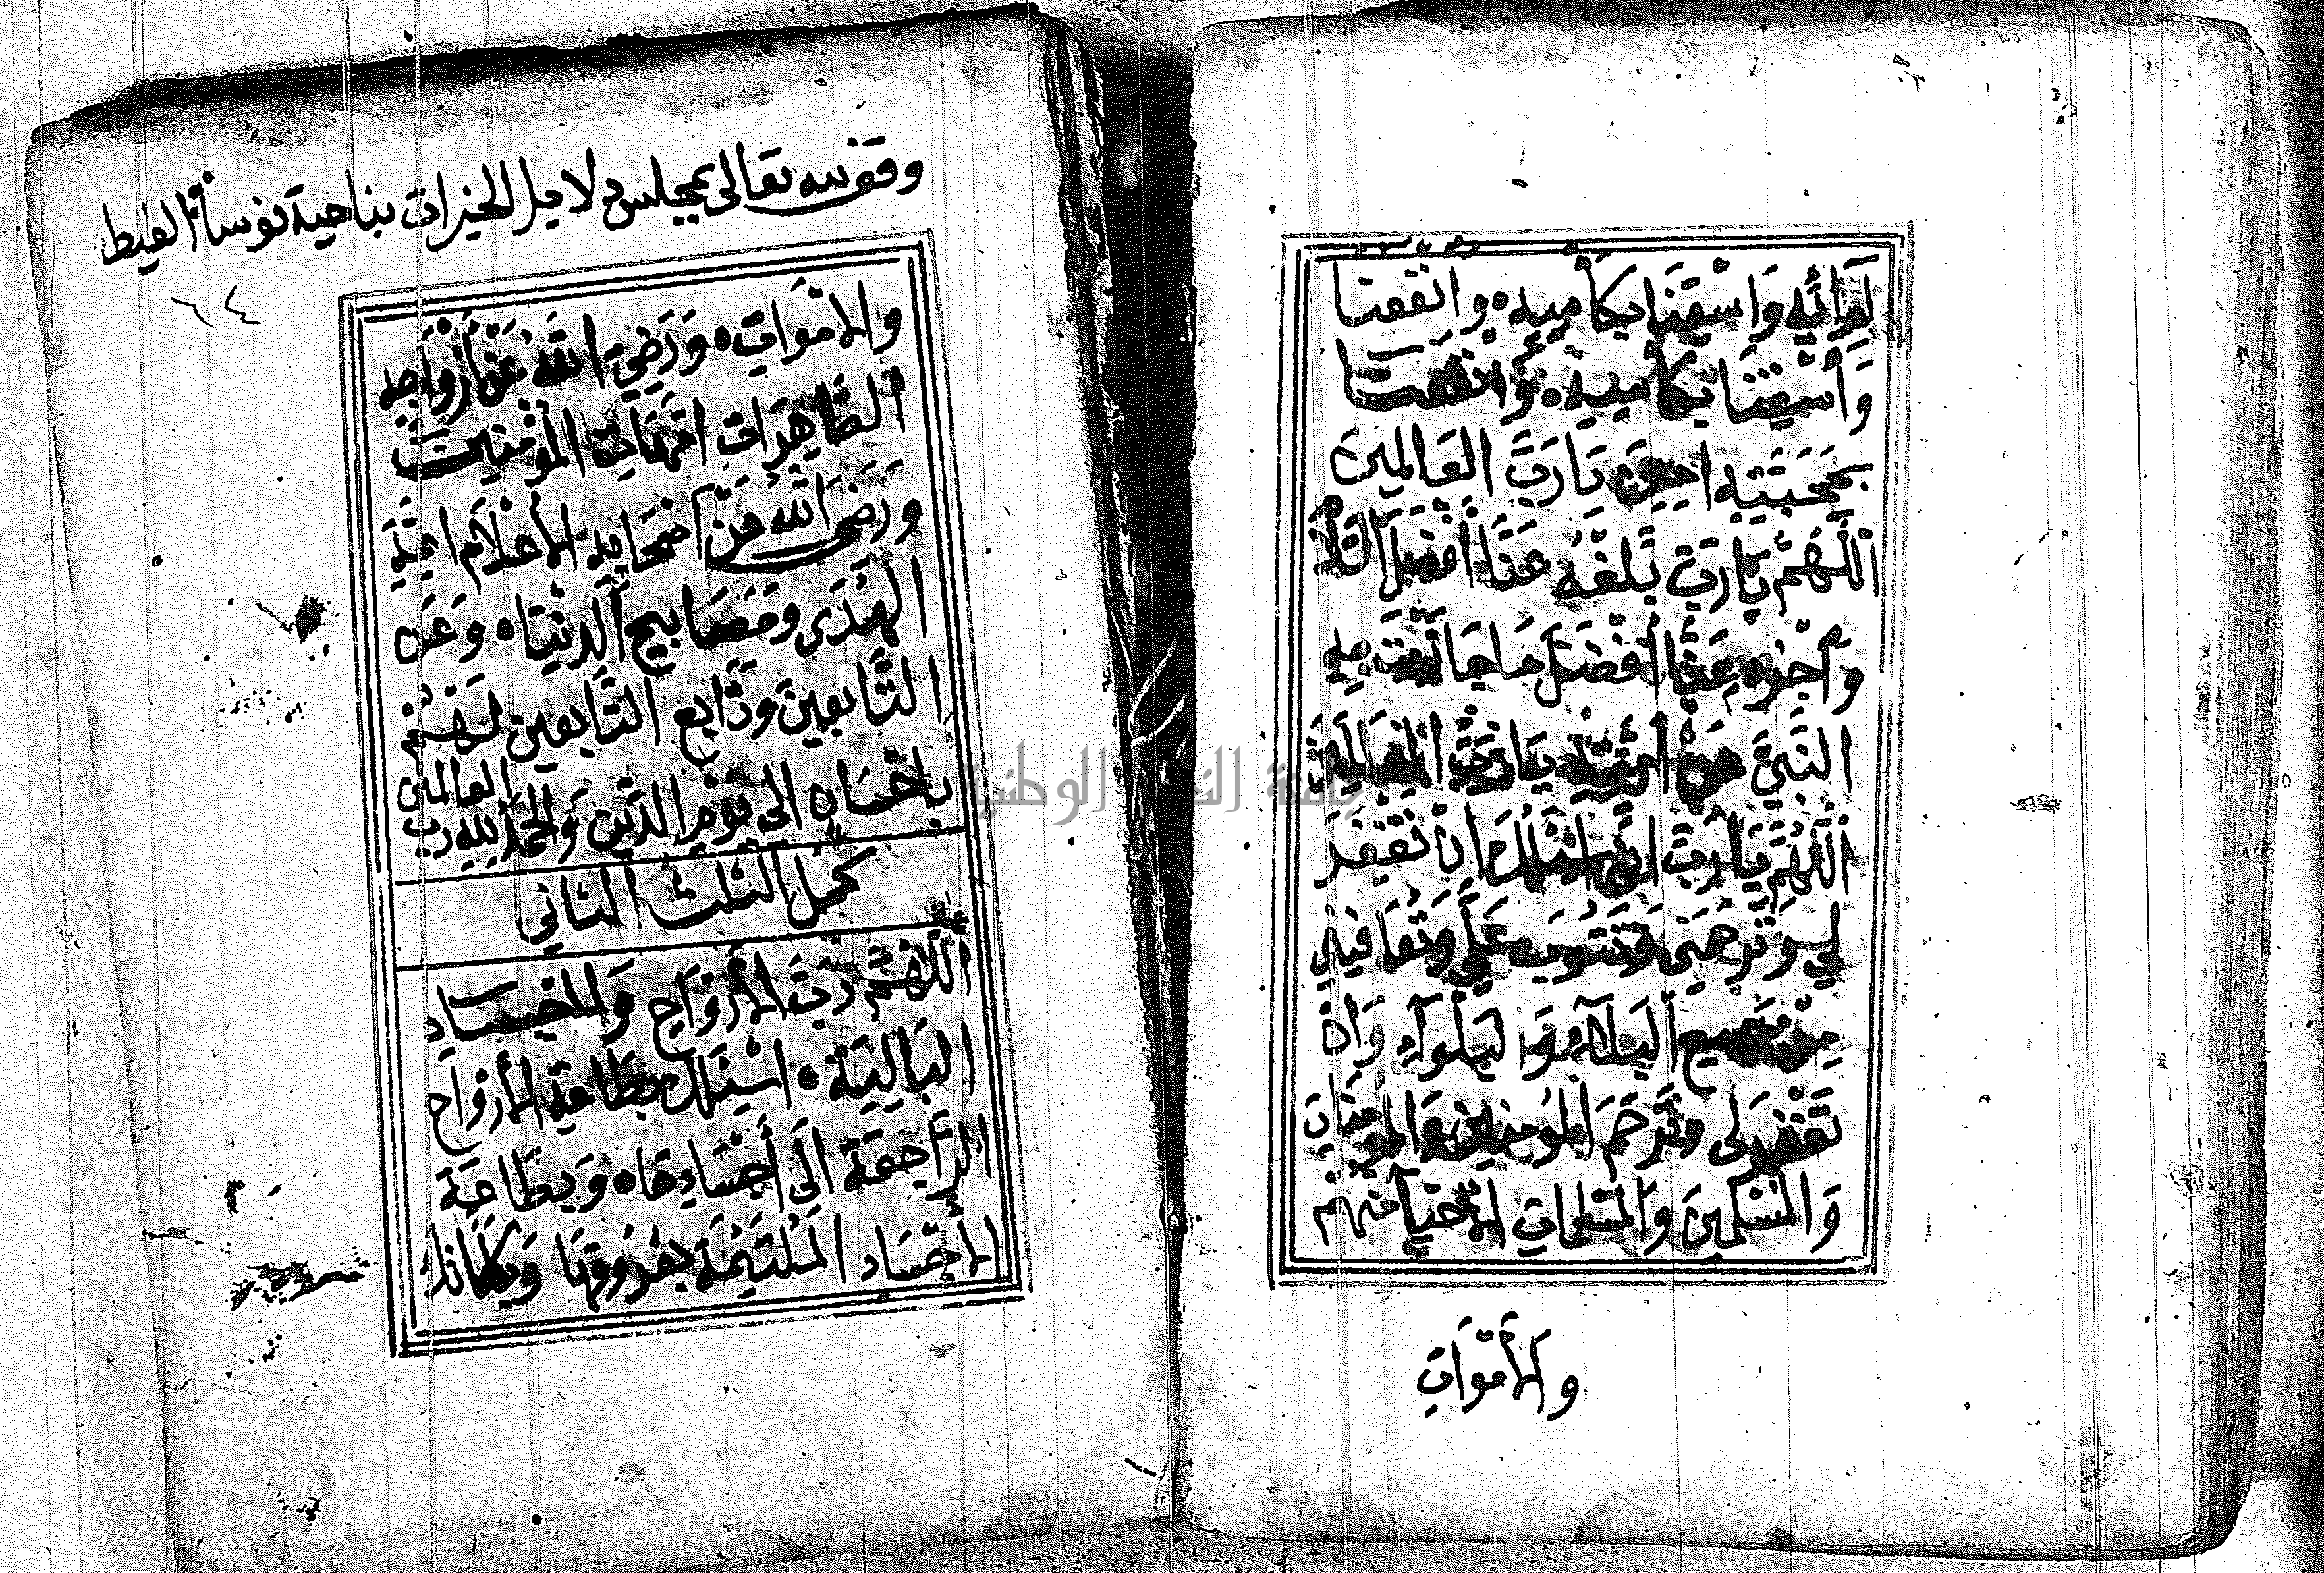 لِوَائِهِ وَاسْقِنَا بِكَأْسِهِ وانفعنا
وَأَسْقِنَا بِكَأْسِهِ وَانْفَعْنَا
بِمَحَبَّتِهِ امِينَ يَارَبَّ العَالَمِينَ
اللَّهُمَّ يَارَبِّ بَلِّغْهُ عَنَّا أَفْضَلَ السَّلَامِ
وَاجْزِهِ عَنَّا أَفْضَلَ مَا جَازَيْتَ بِهِ
النَّبِيَّ عَنْ أُمَّتِهِ يَارَبَّ العَالَمِينَ
اللَّهُمَّ يَارَبِّ اني اسْئَلُكَ ان تَغْفِرَ
لِي وَتَرْحَمَنِي وَتَتُوبَ عَلَيَّ وَتُعَافِيَنِي
مِنْ جَمِيعِ البَلَاءِ وَالبَلْوَآءِ وَانْ
تَغْفِرَ لِي وَتَرْحَمَ المُؤمِنِينَ وَالمُومِنَاتِ
وَالمُسْلِمِينَ وَالمُسْلِمَاتِ الأَحْيَآءِ مِنْهُمْ
وَالأَمْوَاتِ
وقف لله تعالى بمجلس دلايل الخيرات بناحية نوسا الغيط
٦٤
وَالأَمْوَاتِ وَرَضِيَ اللهُ عَنْ أَزْوَاجِهِ
الطَّاهِرَاتِ امَّهَاتِ المُؤْمِنِينَ
وَرَضِيَ اللهُ عَنْ أَصْحَابِهِ الأَعْلَامِ ايمَّةِ
الهُدَى وَمَصَابِيحِ الدُّنْيَا وَعَنِ
التَّابِعِينَ وَتَابِعِ التَّابِعِينَ لَهُمْ
بِاحْسَانٍ الى يَوْمِ الدِّينِ وَالحَمْدُ لِلهِ رَبِّ العالمين
كمل الثلث الثاني
اللَّهُمَّ رَبَّ الأَرْوَاحِ وَالأَجْسَادِ
البَالِيَةِ اسْئَلُكَ بِطَاعَةِ الأَرْوَاحِ
الرَّاجِعَةِ الَى أَجْسَادِهَا وَبِطَاعَةِ
الأَجْسَادِ المُلْتَئِمَةِ بِعُرُوقِهَا وَبِكَلِمَاتِكَ